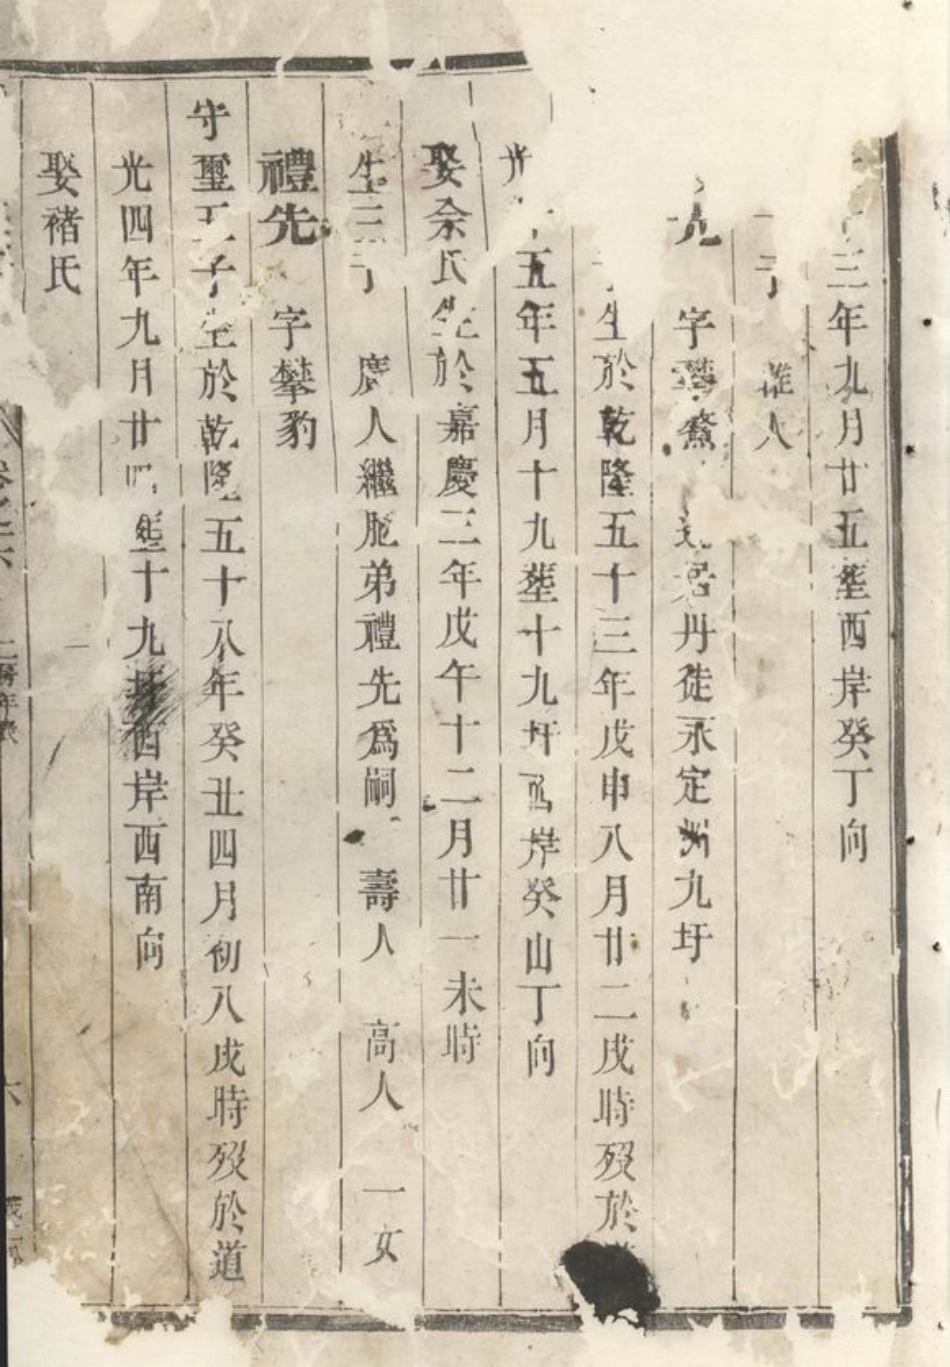 三年九月廿五塟西岸癸丁向
子 人
字攀 居丹徒永定洲九圩
生於乾隆五十三年戊申八月廿二戌時歿於
光 五年五月十九塟十九圩西岸癸山丁向
娶佘氏生於嘉慶三年戊午十二月廿一未時
生三子 廣人繼胞弟禮先爲嗣 壽人 高人 一女
禮先 字攀豹
守璽 子生於乾隆五十八年癸丑四月初八戌時歿於道
光四年九月廿四塟十九圩西岸西南向
娶褚氏
卷之六 二房年表 六